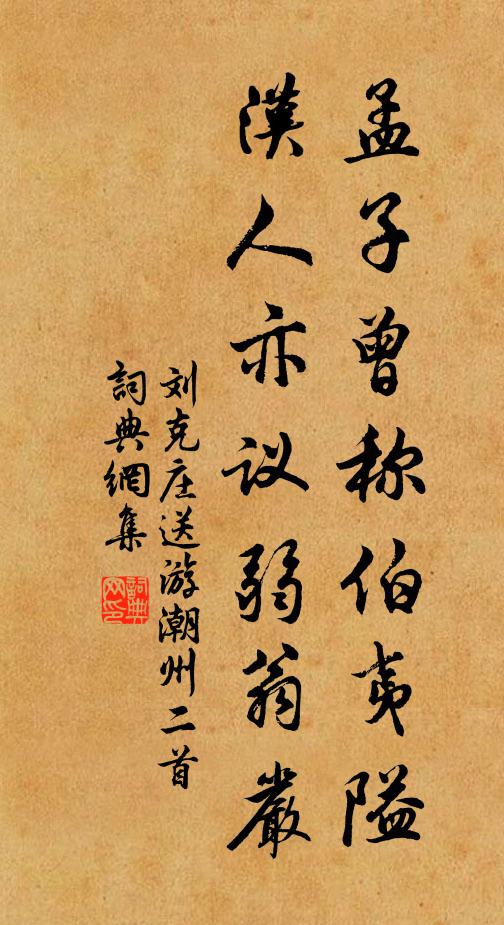 孟子曾称伯夷隘
漢人亦议弱翁嚴
刘克庄送游潮州二首
詞典網集
詞典网印